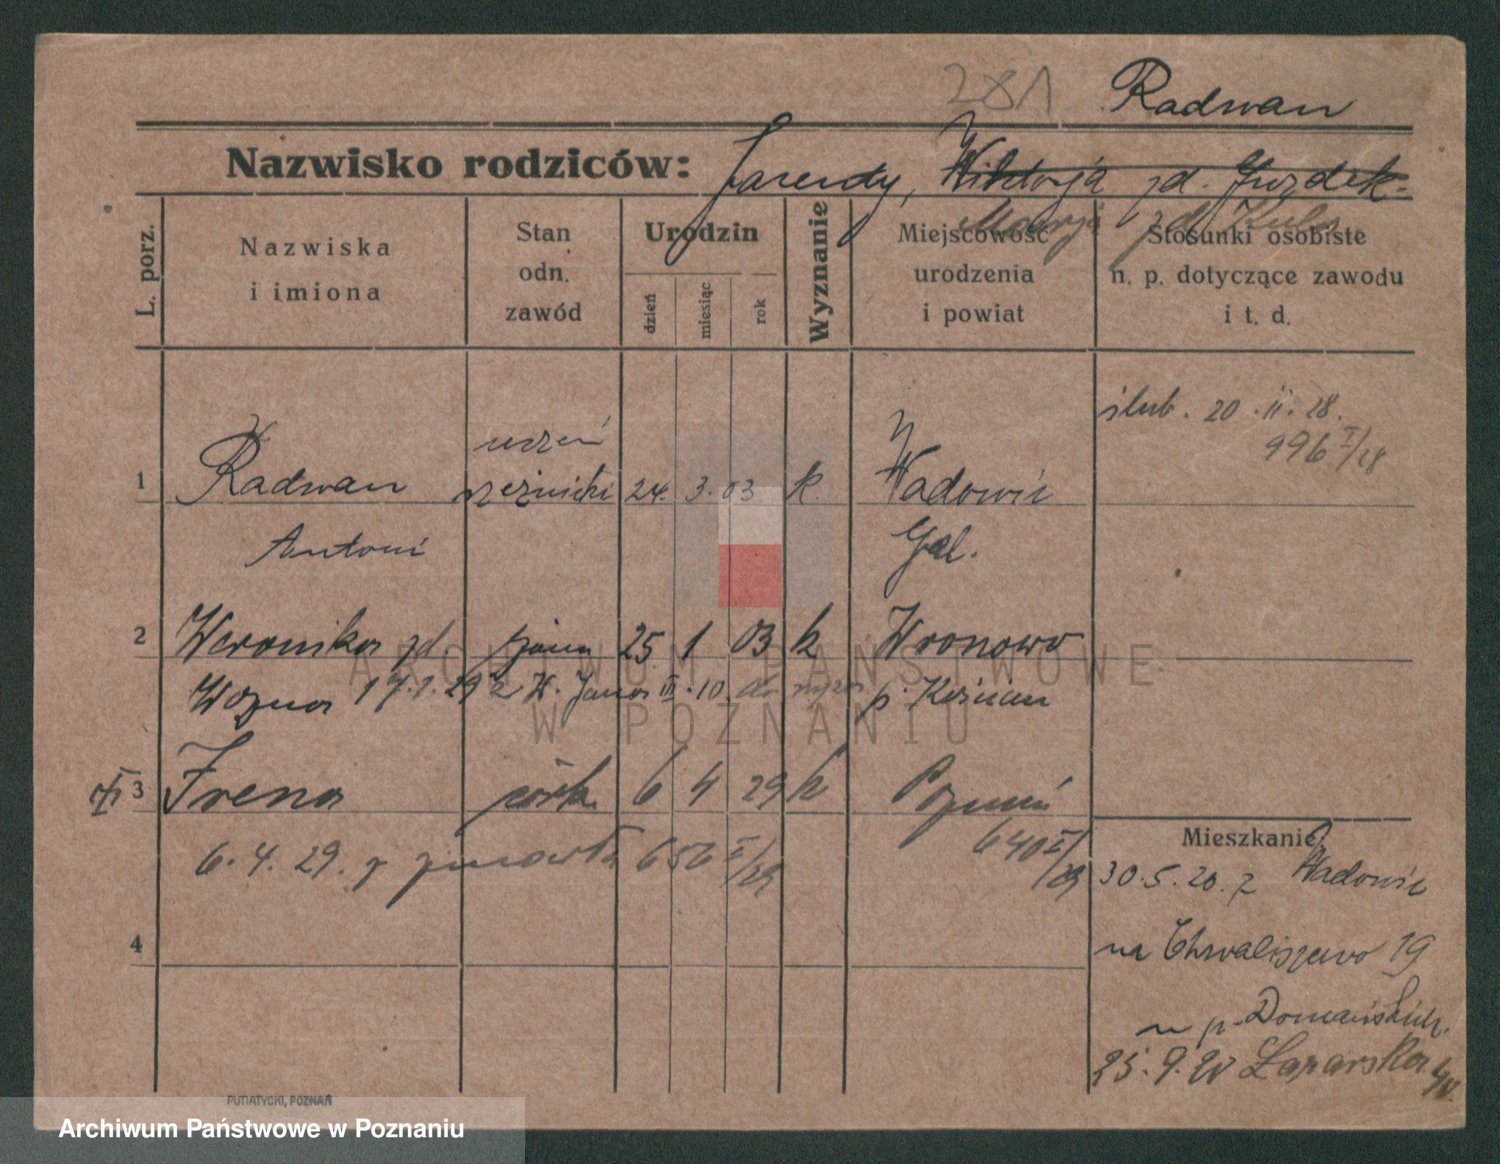 281 Radwan
Nazwisko rodziców: Wiktorja zd.
Marja zd. Kula
L. porz.
Nazwiska
i imiona
Stan
odn.
zawód
Urodzin
dzień
miesiąc
rok
Wyznanie
Miejscowość
urodzenia
i powiat
Stosunki osobiste
n. p. dotyczące zawodu
i t. d.
ślub. 20. II. 28.
996 I/28
uczeń
1 Radwan rzeźnicki 24. 3. 03 k. Wadowic
Antoni Gal.
2 Weronika zd. żona 25 1 03 k Wronowo
Wozna 17.1.29 z W. Jana III. 10. p. Kościan
3 Irena córka 6 4 29 k Poznań
6. 4. 29. zmarła 656 I/29 640 I/29
4
Mieszkanie
30.5.20. z Wadowic
na Chwaliszewo 19
u p. Domańskich.
25. 9. 20 Łazarska
ARCHIWUM PAŃSTWOWE
W POZNANIU
PUTIATYCKI, POZNAŃ
Archiwum Państwowe w Poznaniu